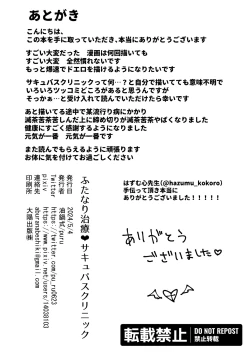 あとがき
こんにちは、
この本を手に取っていただき、本当にありがとうございます
すごい大変だった 漫画は何回描いても
すごい大変 全然慣れないです
もっと爆速でドエロを描けるようになりたいです
サキュバスクリニックって何…？と自分で描いてても意味不明で
いろいろツッコミどころがあると思うんですが
そっかぁ…と受け入れて読んでいただけたら幸いです
あと描いてる途中で某流行り病にかかり
滅茶苦茶苦しんだ上に締め切りが滅茶苦茶やばくなりました
健康にすごく感謝するようになりました
元気が一番 元気が一番です
また読んでもらえるように頑張ります
お体に気を付けてお過ごしください
はずむ心先生(@hazumu_kokoro)
手伝って頂き本当に
ありがとうございました！！！！！
ありがとう
ございました♡
ふたなり治療♥サキュバスクリニック
発行日 2024/5/4
発行者 油鍋式/puru
Twitter https://Twitter.com/pu_ru0623
pixiv https://www.pixiv.net/users/74038103
連絡先 aburanabeshiki@gmail.com
印刷所 大陽出版㈱
転載禁止
DO NOT REPOST
禁止转载